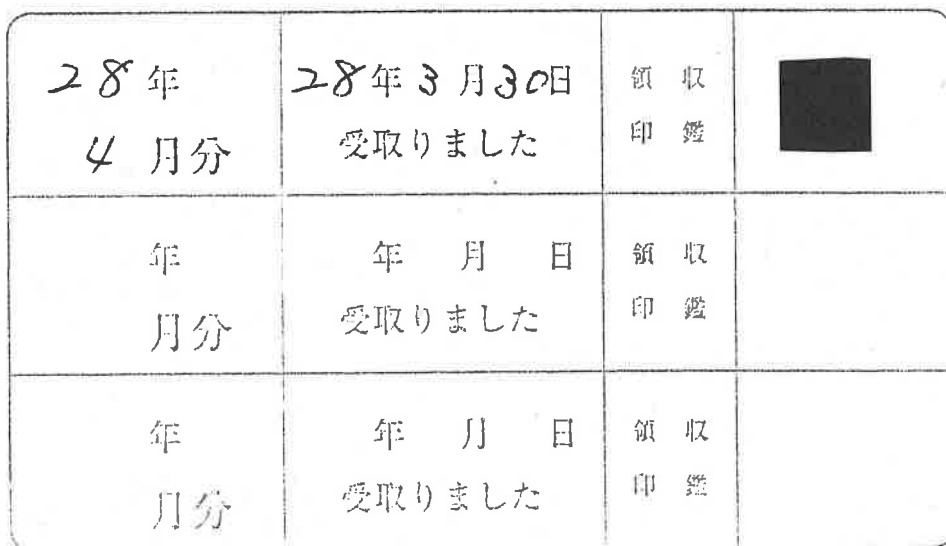 28年
4月分
28年3月30日
受取りました
領収
印鑑
年
月分
年 月 日
受取りました
領収
印鑑
年
月分
年 月 日
受取りました
領収
印鑑